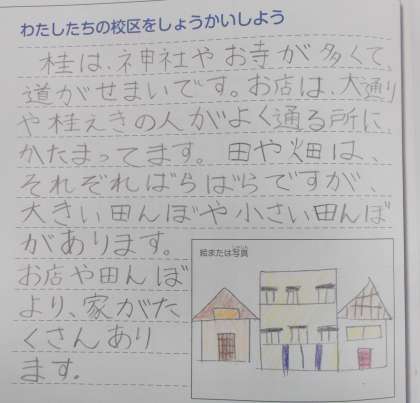 わたしたちの校区をしょうかいしよう
桂は、神社やお寺が多くて、
道がせまいです。お店は、大通り
や桂えきの人がよく通る所に、
かたまってます。田や畑は、
それぞればらばらですが、
大きい田んぼや小さい田んぼ
があります。
お店や田んぼ
より、家がた
くさんあり
ます。
絵または写真